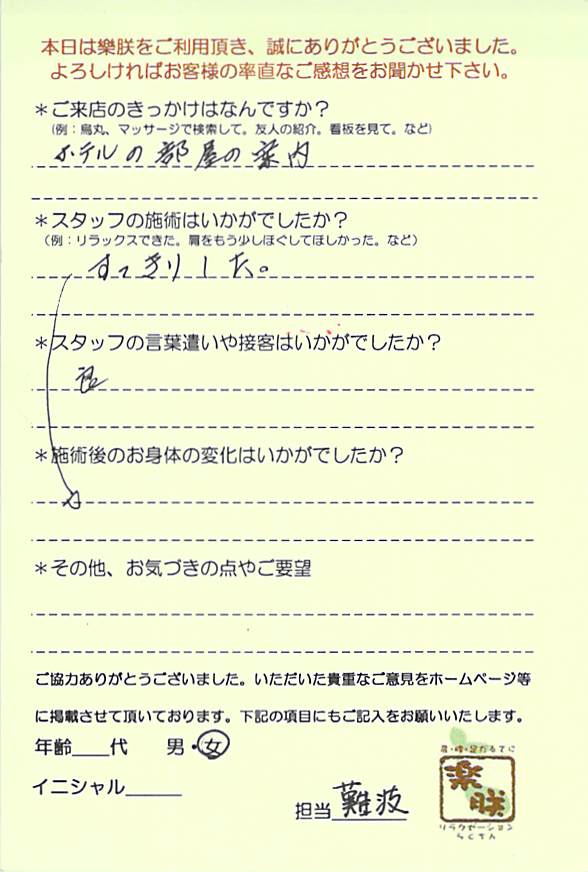 本日は樂朕をご利用頂き、誠にありがとうございました。
よろしければお客様の率直なご感想をお聞かせ下さい。
＊ご来店のきっかけはなんですか？
（例：烏丸、マッサージで検索して。友人の紹介。看板を見て。など）
ホテルの部屋の案内
＊スタッフの施術はいかがでしたか？
（例：リラックスできた。肩をもう少しほぐしてほしかった。など）
すっきりした。
＊スタッフの言葉遣いや接客はいかがでしたか？
＊施術後のお身体の変化はいかがでしたか？
＊その他、お気づきの点やご要望
ご協力ありがとうございました。いただいた貴重なご意見をホームページ等
に掲載させて頂いております。下記の項目にもご記入をお願いいたします。
年齢____代 男・女
イニシャル______
担当 難波
楽朕
リラクゼーション
らくちん